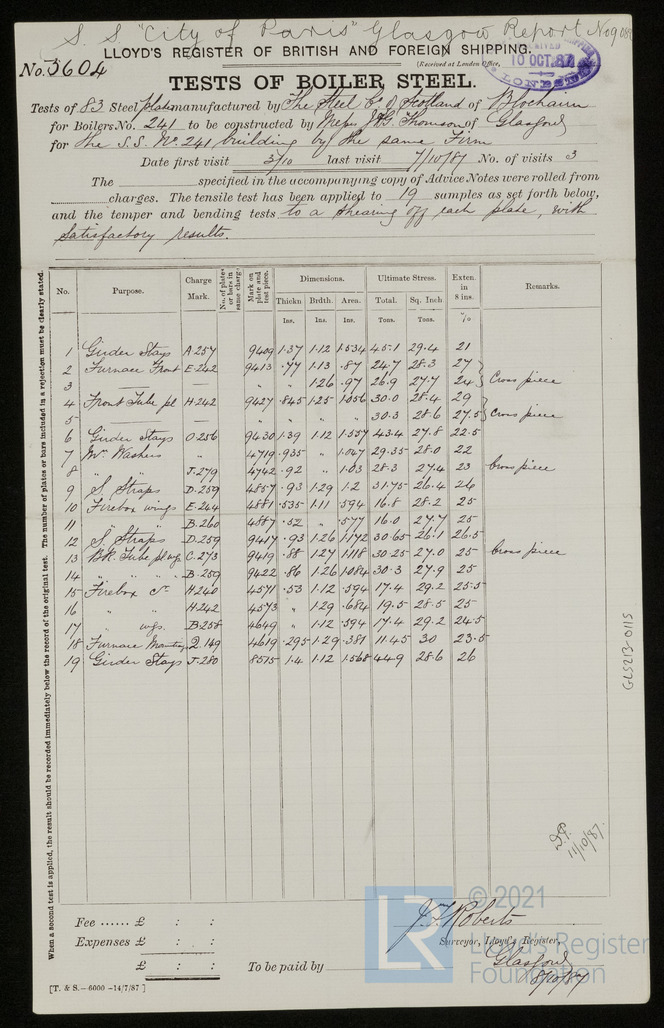 S. S. "City of Paris" Glasgow Report No 9
LLOYD'S REGISTER OF BRITISH AND FOREIGN SHIPPING.
No. 5604
(Received at London Office,
10 OCT. 87
LONDON
TESTS OF BOILER STEEL.
Tests of 83 Steel plates manufactured by The Steel Co. of Scotland of Blochairn
for Boilers No. 241 to be constructed by Messrs J & G Thomson of Glasgow
for the S.S. No. 241 building by the same Firm
Date first visit 3/10 last visit 7/10/87 No. of visits 3
The specified in the accompanying copy of Advice Notes were rolled from
charges. The tensile test has been applied to 19 samples as set forth below,
and the temper and bending tests to a shearing off each plate, with
satisfactory results.
When a second test is applied, the result should be recorded immediately below the record of the original test. The number of plates or bars included in a rejection must be clearly stated.
No. Purpose. Charge Mark. No. of plates or bars in same charge. Mark on plate and test piece. Dimensions. Ultimate Stress. Exten. in 8 ins. Remarks.
Thickn Brdth. Area. Total. Sq. Inch
Ins. Ins. Ins. Tons. Tons. %
1 Girder Stays A.257 9409 1.37 1.12 1.534 45.1 29.4 21
2 Furnace Front E.242 9413 .77 1.13 .87 24.7 28.3 27
3 — — " " 1.26 .97 26.9 27.7 24 Cross piece
4 Front Tube pl H.242 9427 .845 1.25 1.056 30.0 28.4 29
5 — — " " " " 30.3 28.6 27.5 Cross piece
6 Girder Stays O.256 9430 1.39 1.12 1.557 43.4 27.8 22.5
7 Washers " 4719 .935 " 1.047 29.35 28.0 22
8 " " J.279 4742 .92 " 1.03 28.3 27.4 23 Cross piece
9 S. Straps D.259 4857 .93 1.29 1.2 31.75 26.4 26
10 Firebox wings E.244 4881 .535 1.11 .594 16.8 28.2 25
11 " " B.260 4887 .52 " .577 16.0 27.7 25
12 S. Straps D.259 9417 .93 1.26 1.172 30.65 26.1 26.5
13 Bk. Tube pl wgs C.273 9419 .88 1.27 1.118 30.25 27.0 25 Cross piece
14 " " " " B.259 9422 .86 1.26 1.084 30.3 27.9 25
15 Firebox H.240 4571 .53 1.12 .594 17.4 29.2 25.5
16 " " H.242 4573 " 1.29 .684 19.5 28.5 25
17 " wgs. B.258 4649 " 1.12 .594 17.4 29.2 24.5
18 Furnace Q.149 4619 .295 1.29 .381 11.45 30 23.5
19 Girder Stays J.280 8515 1.4 1.12 1.568 44.9 28.6 26
GLS213-0115
11/10/87.
Fee ...... £ : :
Expenses £ : :
£ : :
To be paid by
J. F. Roberts
Surveyor, Lloyd's Register,
Glasgow
8/10/87
[T. & S.—6000 -14/7/87 ]
LR
© 2021
Lloyd's Register
Foundation